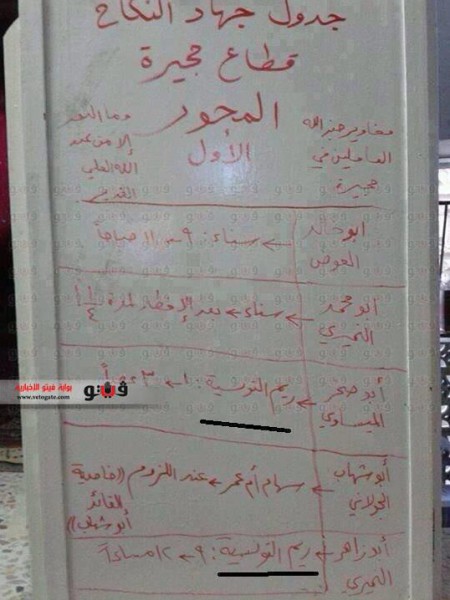 جدول جهاد النكاح
قطاع حجيرة
المحور
الأول
مغاوير حزب الله
العاملين في
حجيرة
وما النصر
إلا من عند
الله العلي
القدير
ابو خالد
العوض
سناء: ٩ → ١١ صباحاً
أبو محمد
النميري
سناء → بعد الإفطار لمدة
أبو صخر
الميساوي
ريم التونسية: ١ → ٣
أبو شهاب
الجولاني
سهام أم عمر → عند اللزوم ((خاصة
القائد
أبو شهاب))
أبو زاهر
النميري
ريم التونسية: ٩ → ١٢ مساءاً
بوابة فيتو الإخبارية
www.vetogate.com
فيتو